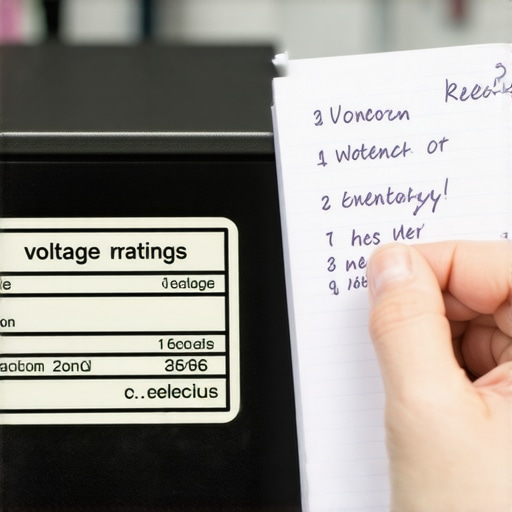 voltage rratings
e
on
16coals
aobom 2on
36/96
c..eelecius
3 Voncozn
1 Wotenct Ot
2 Enentatgyy!
7 hes Uer
3 ne
9 16b